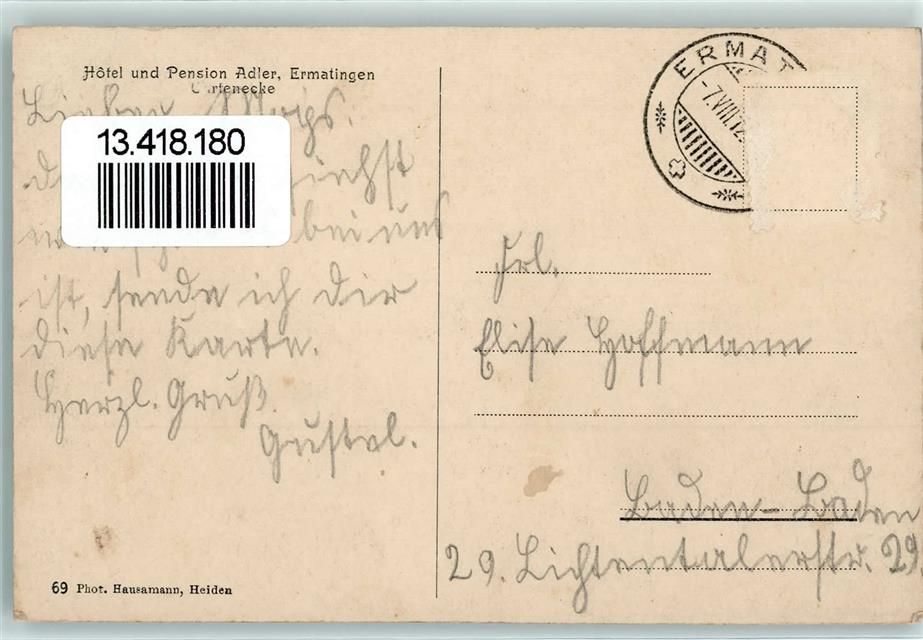 Hôtel und Pension Adler, Ermatingen
Gartenecke
Lieber Mops.
13.418.180
siehst
bei uns
ist, sende ich dir
diese Karte.
Herzl. Gruß.
Gustel.
69 Phot. Hausamann, Heiden
ERMAT
-7.VIII.12
Frl.
Elise Hoffmann
Baden-Baden
29. Lichtentalerstr. 29.